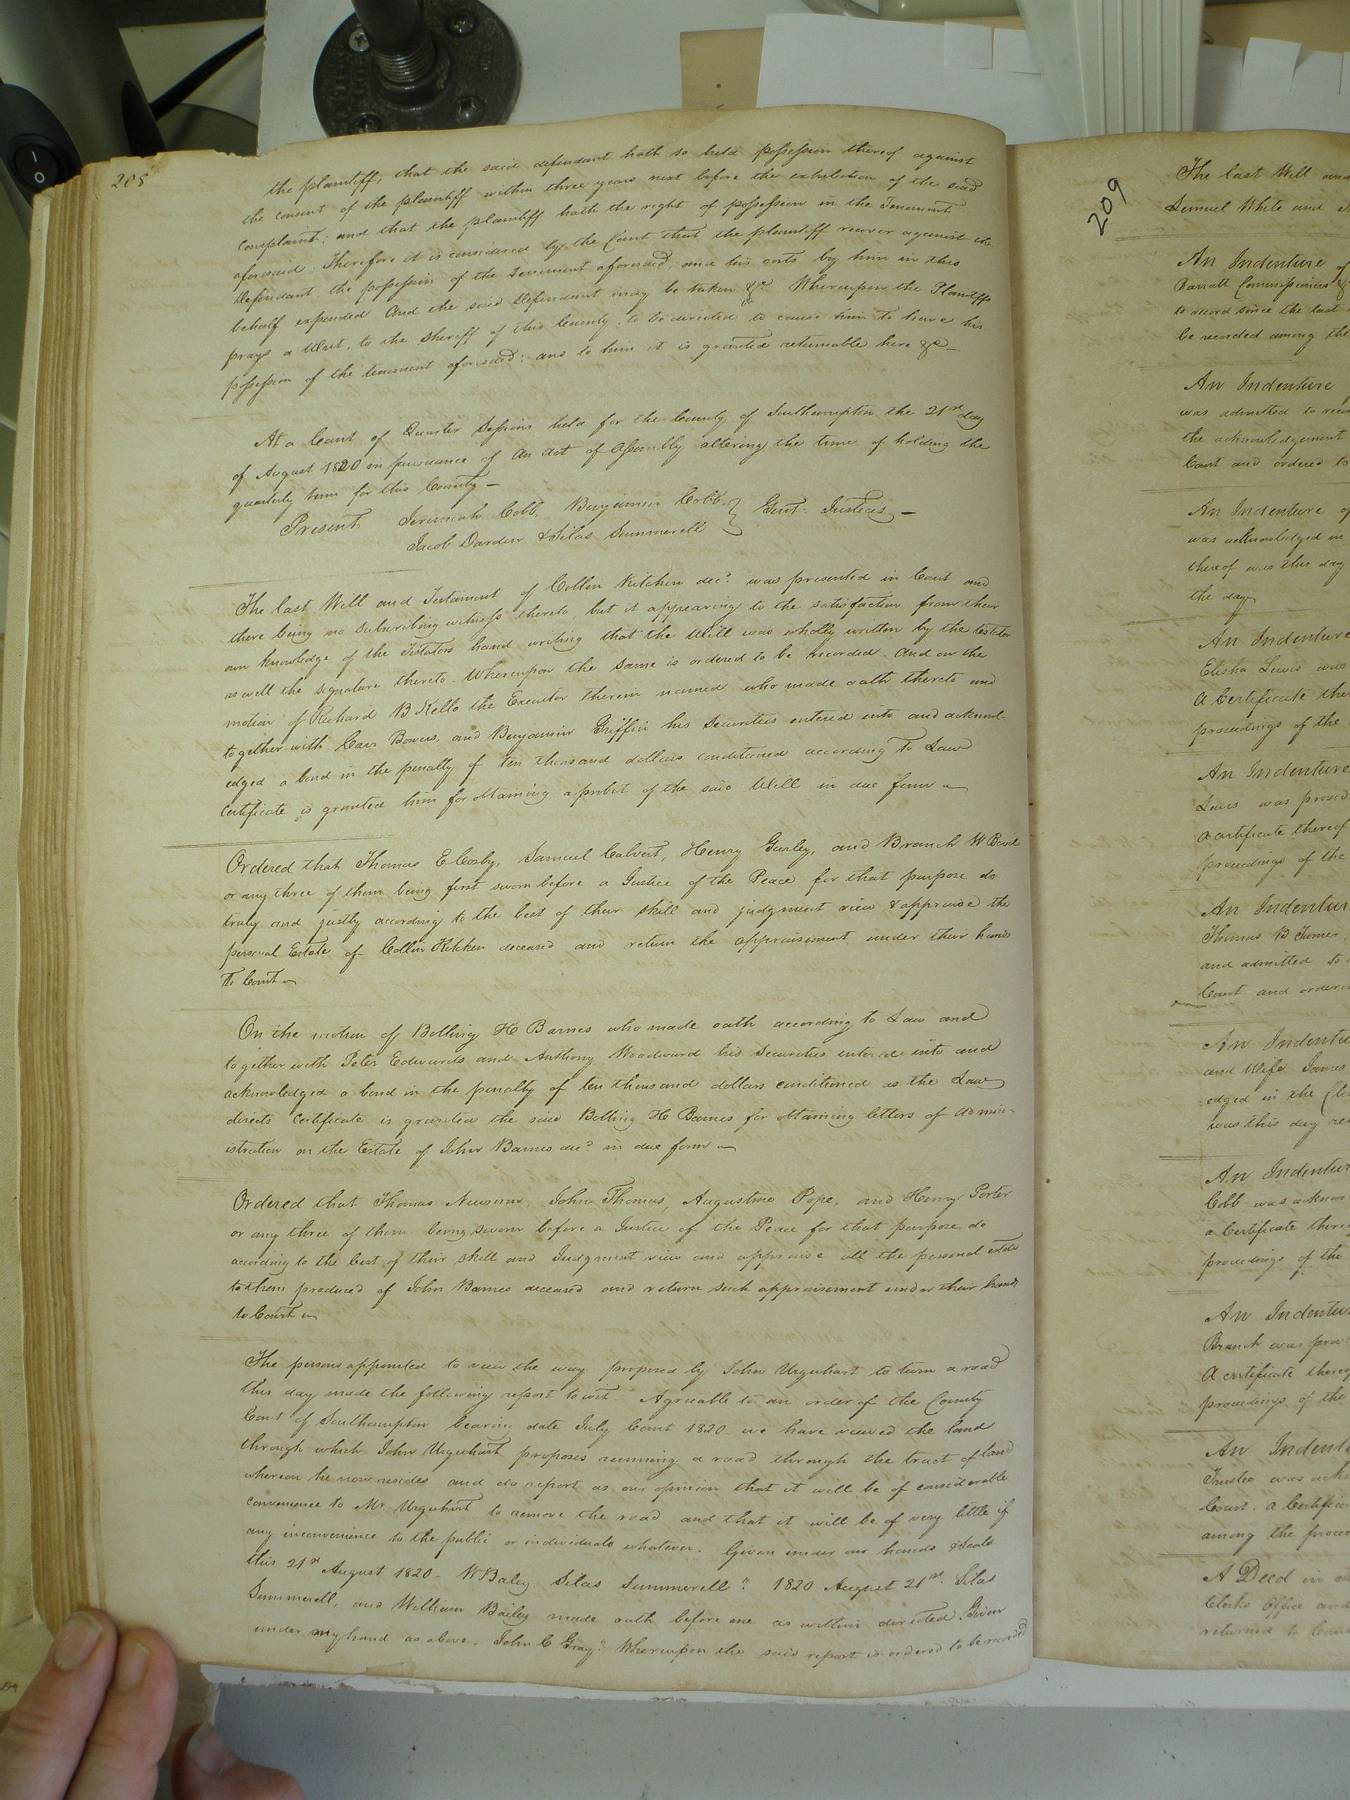 208
the plaintiff; that the said defendant hath so held possession thereof against
the consent of the plaintiff within three years next before the exhibition of the said
complaint; and that the plaintiff hath the right of possession in the Tenement
aforesaid Therefore it is considered by the Court that the plaintiff recover against the
Defendant the possession of the tenement aforesaid, and his costs by him in this
behalf expended And the said Defendant may be taken &c Whereupon the Plaintiff
prays a Writ, to the Sheriff of this County, to be directed to cause him to have his
possession of the tenement aforesaid; and to him it is granted returnable here &c—
At a Court of Quarter Sessions held for the County of Southampton the 21st day
of August 1820 in pursuance of An Act of Assembly altering the time of holding the
quarterly term for this County—
Present Jeremiah Cobb, Benjamin Cobb } Gent. Justices—
Jacob Darden & Silas Summerell
The last Will and Testament of Collin Kitchen decd. was presented in Court and
there being no subscribing witness thereto, but it appearing to the satisfaction from their
own knowledge of the Testators hand writing that the Will was wholly written by the testator
as well the signature thereto. Whereupon the same is ordered to be recorded. And on the
motion of Richard B Kello the Executor therein named who made oath thereto and
together with Carr Bowers, and Benjamin Griffin his Securities entered into and acknowl-
edged a bond in the penalty of ten thousand dollars conditioned according to Law
Certificate is granted him for obtaining a probat of the said Will in due form—
Ordered that Thomas E Cosby, Samuel Calvert, Henry Gurley, and Branch W
or any three of them being first sworn before a Justice of the Peace for that purpose do
truly and justly according to the best of their skill and judgment view & appraise the
personal Estate of Collin Kitchen deceased and return the appraisement under their hands
to Court—
On the motion of Bolling H Barnes who made oath according to Law and
together with Peter Edwards and Anthony Woodward his Securities entered into and
acknowledged a bond in the penalty of ten thousand dollars conditioned as the Law
directs Certificate is granted the said Bolling H Barnes for obtaining letters of admin-
istration on the Estate of John Barnes decd. in due form—
Ordered that Thomas Newsum, John Thomas, Augustine Pope, and Henry Porter
or any three of them being sworn before a Justice of the Peace for that purpose do
according to the best of their skill and Judgment view and appraise all the personal estate
to them produced of John Barnes deceased and return such appraisement under their hands
to Court—
The persons appointed to view the way proposed by John Urquhart to turn a road
this day made the following report to wit Agreeable to an order of the County
Court of Southampton bearing date July Court 1820 we have viewed the land
through which John Urquhart proposes running a road through the tract of land
whereon he now resides and do report as our opinion that it will be of considerable
convenience to Mr. Urquhart to remove the road and that it will be of very little if
any inconvenience to the public or individuals whatever. Given under our hands & seals
this 21st August 1820— W Baley Silas Summerell" 1820 August 21st. Silas
Summerell, and William Bailey made oath before me as within directed. Given
under my hand as above. John C Gray" Whereupon the said report is ordered to be recorded
209
The last Will and
Lemuel White and
An Indenture of
Barratt Commissioners
to record since the last
be recorded among the
An Indenture
was admitted to
the acknowledgement
Court and ordered to
An Indenture of
was acknowledged in
thereof was this day
the day
An Indenture
Elisha Lewis was
a Certificate ther
proceedings of the
An Indenture
Lewis was proved
a certificate thereof
proceedings of the
An Indentur
Thomas B Turner
and admitted to
Court and ordered
An Indentu
and Wife James
edged in the Cle
was this day re
An Indentur
Cobb was acknow
a Certificate there
proceedings of the
An Indentu
Branch was prov
a certificate thereof
proceedings of the
An Indentu
Trustee was ackn
Court. a Certific
among the procee
A Deed in
Clerks Office and
returned to Court